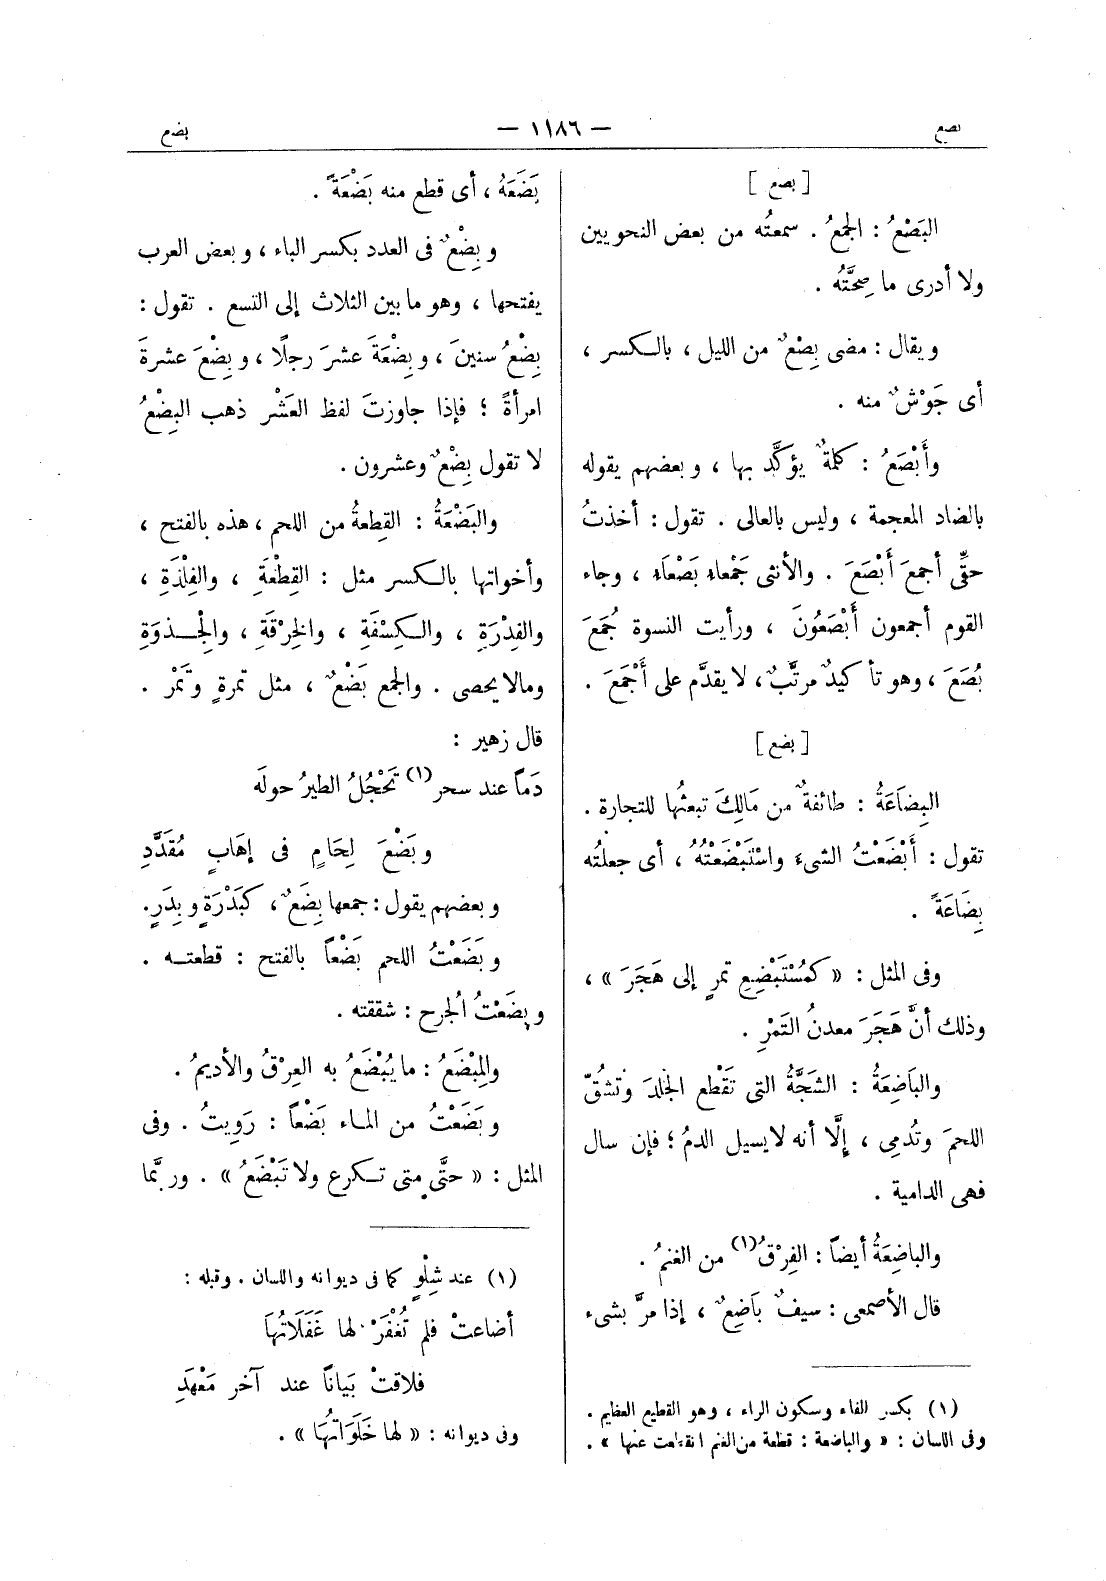 بصع
— ١١٨٦ —
بضع
[ بصع ]
البَصْعُ : الجمعُ . سمعتُه من بعض النحويين
ولا أدرى ما صِحَّتُه .
ويقال : مضى بِصْعٌ من الليل ، بالكسر ،
أى جَوْشٌ منه .
وأَبْصَعُ : كلمةٌ يؤكَّد بها ، وبعضهم يقوله
بالضاد المعجمة ، وليس بالعالى . تقول : أخذتُ
حقِّى أجمعَ أَبْصَعَ . والأنثى جَمْعاءَ بَصْعَاءَ ، وجاء
القوم أجمعون أَبْصَعُونَ ، ورأيت النسوة جُمَعَ
بُصَعَ ، وهو تأكيدٌ مرتَّبٌ ، لا يقدَّم على أَجْمَعَ .
[ بضع ]
البِضَاعَةُ : طائفةٌ من مَالِكَ تبعثُها للتجارة .
تقول : أَبْضَعْتُ الشىءَ واسْتَبْضَعْتُهُ ، أى جعلتُه
بِضَاعَةً .
وفى المثل : « كمُسْتَبْضِعِ تمرٍ إلى هَجَرَ » ،
وذلك أنَّ هَجَرَ معدنُ التَمْرِ .
والبَاضِعَةُ : الشَجَّةُ التى تَقْطع الجْلدَ وتشُقّ
اللحمَ وتُدمِى ، إلَّا أنه لا يسيل الدمُ ؛ فإن سال
فهى الدامية .
والباضِعَةُ أيضاً : الفِرْقُ(١) من الغنمُ .
قال الأصمعى : سيفٌ بَاضِعٌ ، إذا مرَّ بشىء
(١) بكسر الفاء وسكون الراء ، وهو القطيع العظيم .
وفى اللسان : « والباضعة : قطعة من الغنم انقطعت عنها » .
بَضَعَهُ ، أى قطع منه بَضْعَةً .
وبِضْعٌ فى العدد بكسر الباء ، وبعض العرب
يفتحها ، وهو ما بين الثلاث إلى التسع . تقول :
بِضْعُ سنينَ ، وبِضْعَةَ عشرَ رجلًا ، وبِضْعَ عشرةَ
امرأةً ؛ فإذا جاوزتَ لفظ العَشْر ذهب البِضْعُ
لا تقول بِضْعٌ وعشرون .
والبَضْعَةُ : القِطعةُ من اللحم ، هذه بالفتح ،
وأخواتها بالكسر مثل : القِطْعَةِ ، والفِلْذَةِ ،
والفِدْرَةِ ، والكِسْفَةِ ، والخِرْقَةِ ، والِجْذوَةِ
ومالا يحصى . والجمع بَضْعٌ ، مثل تمرةٍ وتَمْر .
قال زهير :
دَماً عند سحر(١) تَحْجُلُ الطيرُ حولَه
وبَضْعَ لِحَامٍ فى إهَابٍ مُقَدَّدِ
وبعضهم يقول : جمعها بِضَعٌ ، كبَدْرَةٍ وبِدَرٍ .
وبَضَعْتُ اللحم بَضْعاً بالفتح : قطعته .
وبِضَعْتُ الُجرح : شققته .
والمِبْضَعُ : ما يُبْضَعُ به العِرْقُ والأديمُ .
وبَضَعْتُ من الماء بَضْعاً : رَوِيتُ . وفى
المثل : « حتَّى متى تكرع ولا تَبْضَعُ » . وربَّما
(١) عند شِلْوٍ كما فى ديوانه واللسان . وقبله :
أضاعتْ فلم تُغْفَرْ لها غَفَلَاتُهَا
فلاقتْ بَيَاناً عند آخر مَعْهَدِ
وفى ديوانه : « لها خَلَوَاتُهَا » .